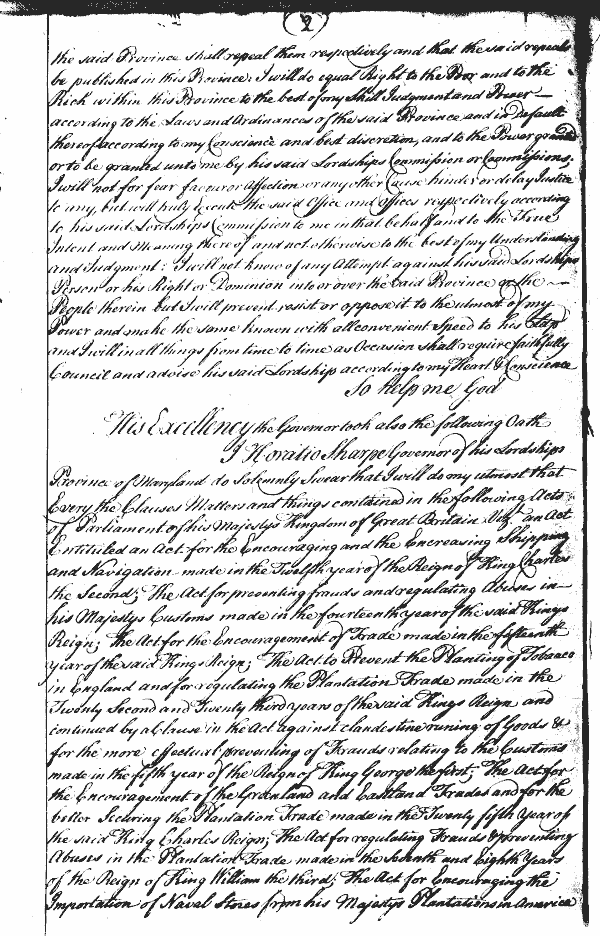 2
the said Province shall repeal them respectively and that the said repeals
be published in this Province: I will do equal Right to the Poor and to the
Rich within this Province to the best of my Skill Judgment and Power
according to the Laws and Ordinances of the said Province and in Default
thereof according to my Conscience and best discretion, and to the Power granted
or to be granted unto me by his said Lordships Commission or Commissions.
I will not for fear favour or Affection or any other Cause hinder or delay Justice
to any, but will truly Execute the said Office and Offices respectively according
to his said Lordships Commission to me in that behalf and to the True
Intent and Meaning thereof and not otherwise to the best of my Understanding
and Judgment: I will not know of any Attempt against his said Lordships
Person or his Right or Dominion into or over the said Province or the
People therein but I will prevent resist or oppose it to the utmost of my
Power and make the same known with all convenient Speed to his Ldsp
and I will in all things from time to time as Occasion shall require faithfully
Council and advise his said Lordship according to my Heart & Conscience
So help me God
His Excellency the Governor took also the following Oath
I Horatio Sharpe Governor of his Lordships
Province of Maryland do Solemnly Swear that I will do my utmost that
Every the Clauses Matters and things contained in the following Acts
of Parliament of his Majestys Kingdom of Great Britain Vizt. an Act
Entituled an Act for the Encouraging and the Encreasing Shipping
and Navigation made in the Twelfth year of the Reign of King Charles
the Second; The Act for preventing frauds and regulating Abuses in
his Majestys Customs made in the fourteenth year of the said Kings
Reign; The Act for the Encouragement of Trade made in the fifteenth
year of the said Kings Reign; The Act to Prevent the Planting of Tobacco
in England and for regulating the Plantation Trade made in the
Twenty Second and Twenty third years of the said Kings Reign and
continued by a Clause in the Act against clandestine runing of Goods &
for the more effectual preventing of Frauds relating to the Customs
made in the fifth year of the Reign of King George the first; The Act for
the Encouragement of the Greenland and Eastland Trades and for the
better Securing the Plantation Trade made in the Twenty fifth Year of
the said King Charles Reign; The Act for regulating Frauds & preventing
Abuses in the Plantation Trade made in the Seventh and Eighth Years
of the Reign of King William the third; The Act for Encouraging the
Importation of Naval Stores from his Majestys Plantations in America